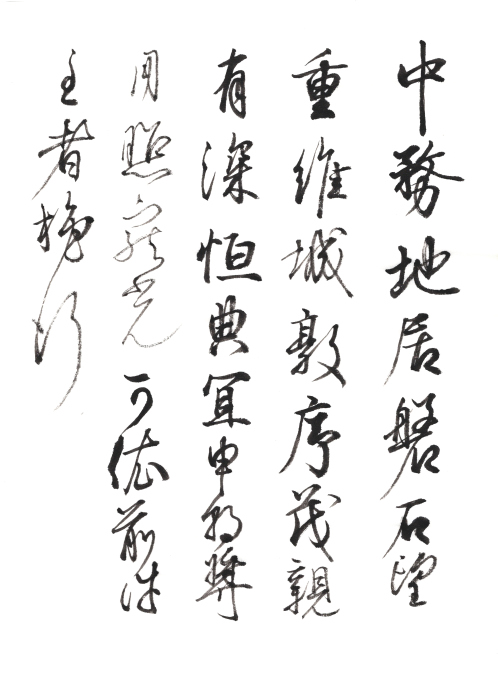 中務地居磐石望
重維城敦序茂親
有深恒典冝申
用照寵光可依前件
主者施行